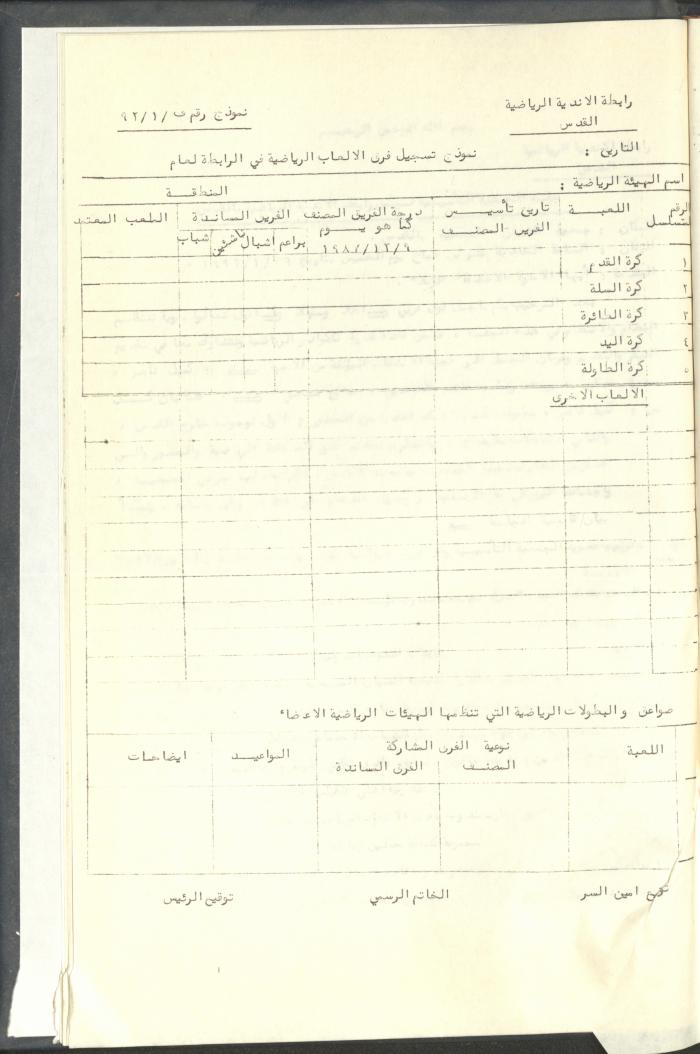 رابطة الاندية الرياضية
القدس
نموذج رقم ف/٩٢/١
التاريخ :
نموذج تسجيل فرق الالعاب الرياضية في الرابطة لعام
اسم الهيئة الرياضية : المنطقــة
الرقم المتسلسل اللعبــة تاريخ تأسيــس الفريق المصنــف درجة الفريق المصنف كما هو يــوم ١٩٨٢/١٢/٩ الفريق المساندة الملعب المعتمد
براعم اشبال ناشئين شباب
١ كرة القدم
٢ كرة السلة
٣ كرة الطائرة
٤ كرة اليد
٥ كرة الطاولة
الالعاب الاخرى
والبطولات الرياضية التي تنظمها الهيئات الرياضية الاعضاء
اللعبة نوعية الفرق المشاركة المواعيــد ايضاحات
المصنــف الفرق المساندة
توقيع امين السر الخاتم الرسمي توقيع الرئيس